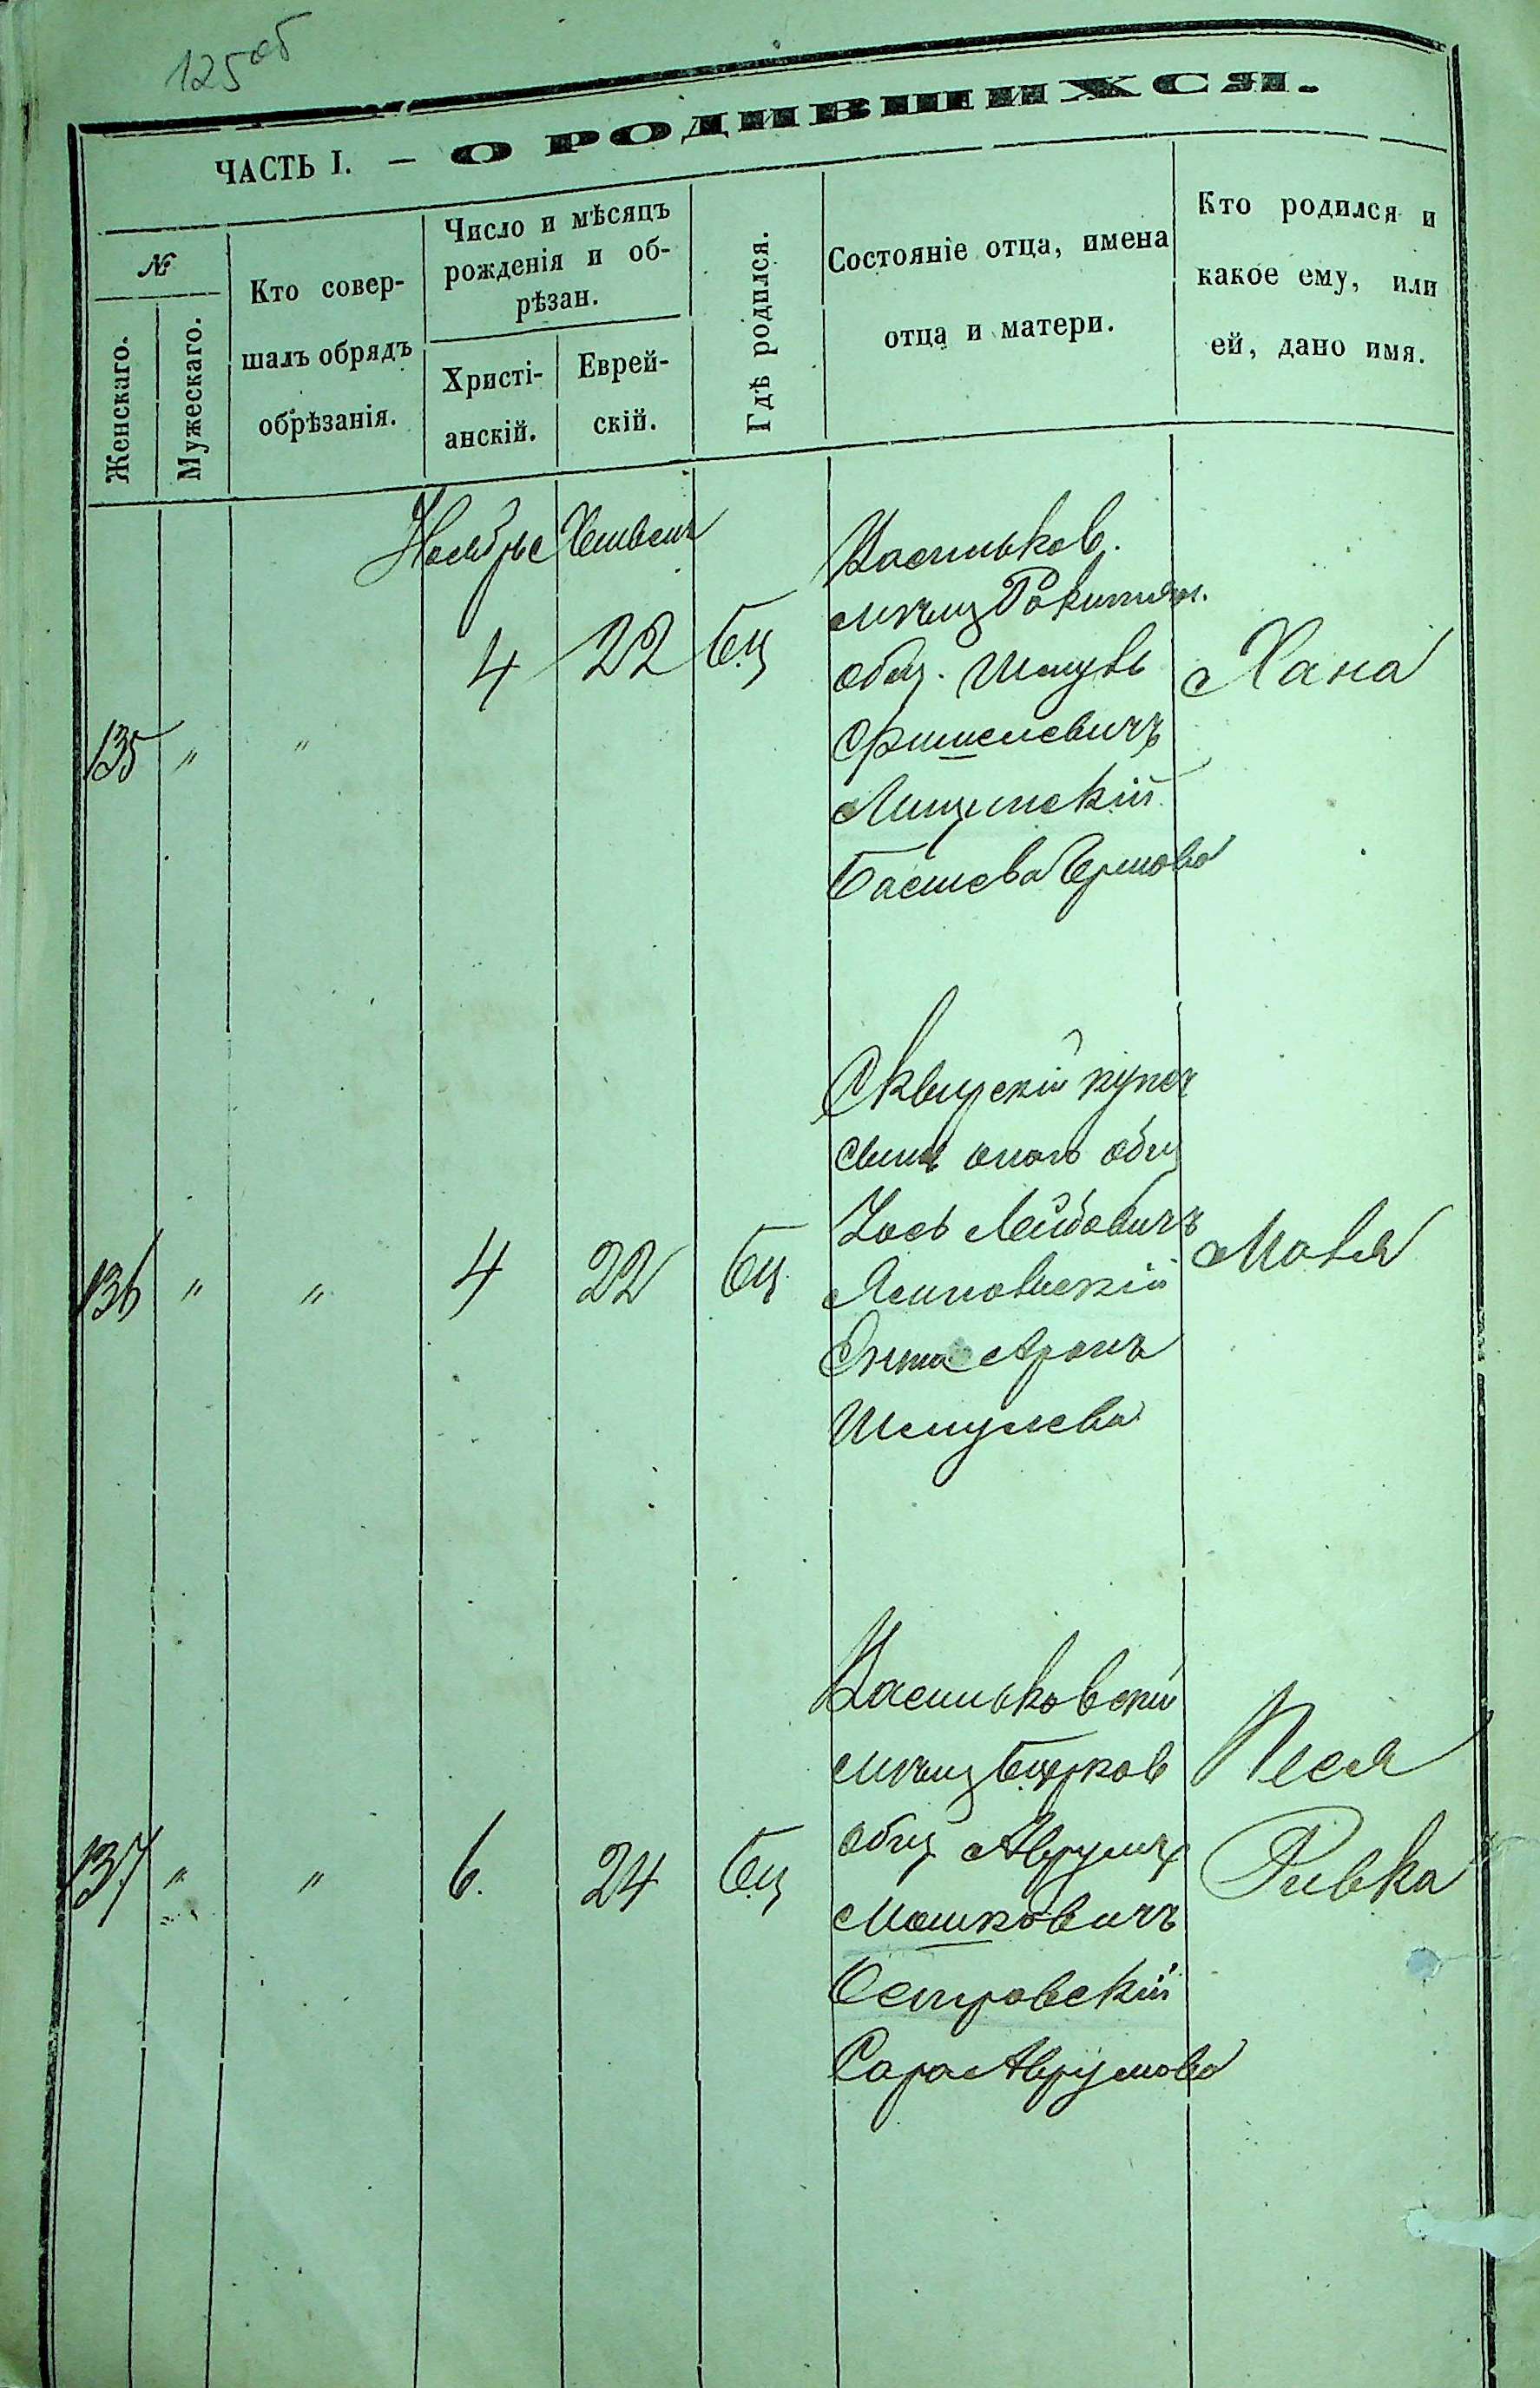 125об
ЧАСТЬ I. — О РОДИВШИХСЯ.
№
Женскаго.
Мужескаго.
Кто совер-
шалъ обрядъ
обрѣзанія.
Число и мѣсяцъ
рожденія и об-
рѣзан.
Христі-
анскій.
Еврей-
скій.
Гдѣ родился.
Состояніе отца, имена
отца и матери.
Кто родился и
какое ему, или
ей, дано имя.
Ноябрь Хешванъ
135 " " 4 22 бц
Васильков.
мѣщ Ракитян.
общ. Шмуль
Фишелевичъ
Лищинскій
Басшева Бершова
Хана
136 " " 4 22 бц
Сквирскій купеч
сынъ оного общ
Іось Лейбовичъ
Энта Аронъ
Шмулева
Маля
137 " " 6. 24 бц
Васильковскій
мѣщ Бѣлцерков
общ Аврумъ
Мошковичъ
Островскій
Сара Аврумова
Песя
Ривка